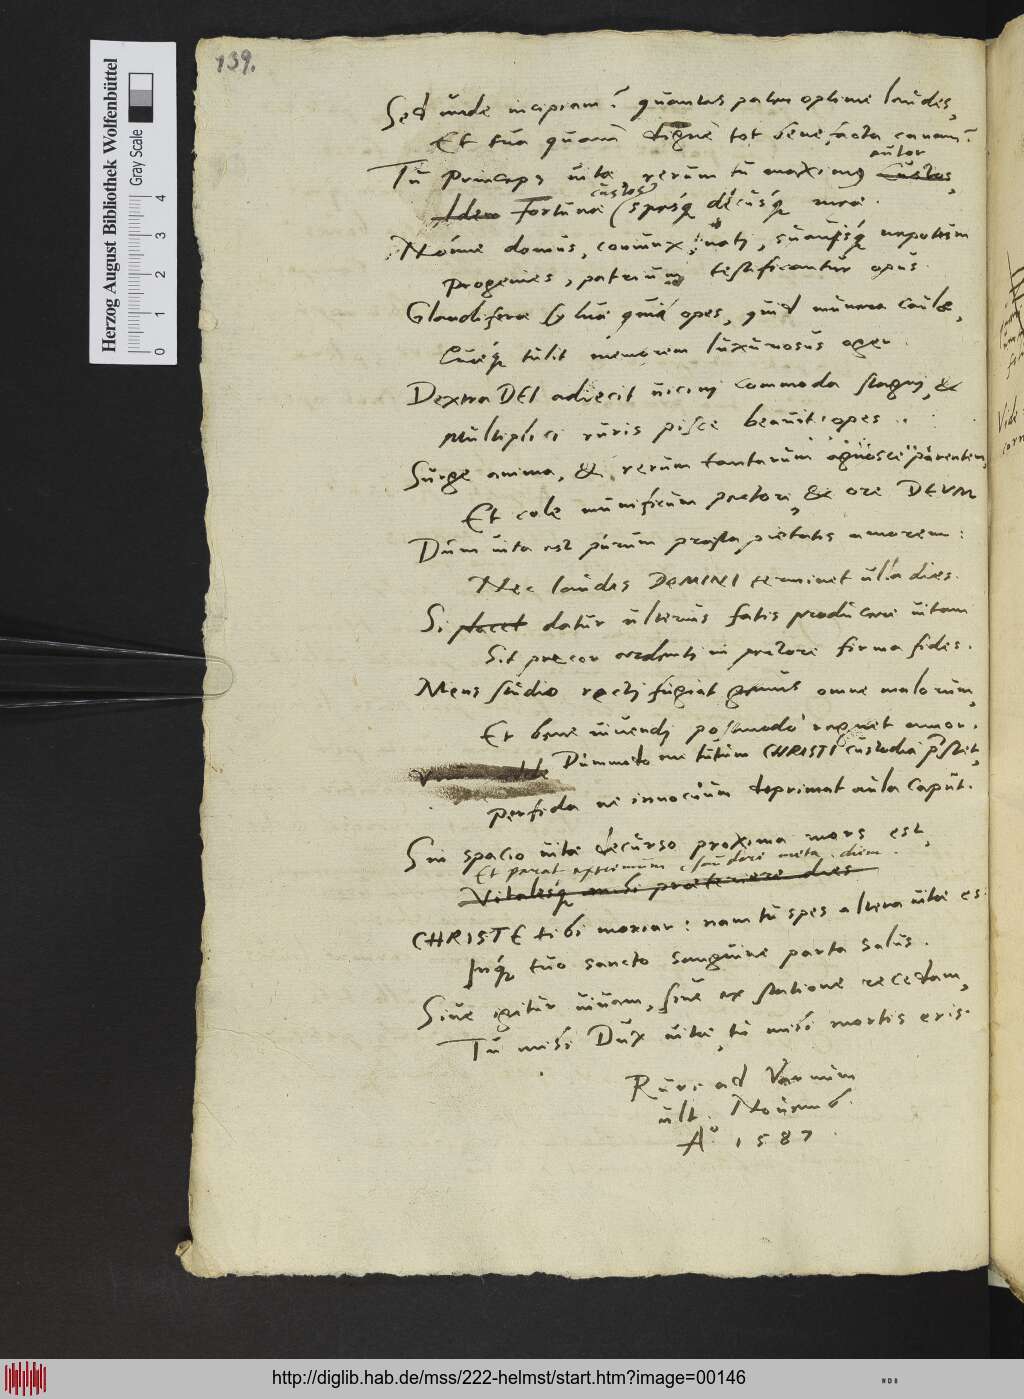 139.
Sed unde incipiam? quantas pater optime laudes,
Et tua quam digne tot benefacta canam?
autor
Tu Princeps vitae rerum tu maximus Custos,
custos
Idem Fortunae spesq́ decusq́ meae.
Nomine domus, coniunx, nati, suavisq́ nepotum
progenies, patrium testificantur opus.
Glandiferae sylvae quid opes, quid munera caulae,
tulit memorem luxuriosus ager.
Dextra DEI adiecit vicini commoda stagni, &
Multiplici ruris pisce beavit opes.
Surge anima, & rerum tantarum agnosce parentem,
Et cole munificum pectore, & ore DEUM
Dum vita est purum praesta pietatis amorem:
Nec laudes DOMINI terminet ulla dies.
Si placet datur ulterius fatis producere vitam
Sit precor ardenti in pectore firma fides.
Mens studio recti fugiat genus omne malorum,
Et bene vivendi postmodo regnet amor.
Dummodo me tutum CHRISTI custodia pstet,
perfida ne innocuum deprimat aula caput.
Sin spacio vitae decurso proxima mors est,
Et parat extremum claudere meta diem.
Vitalesq́ mihi praeteriere dies
CHRISTE tibi moriar: nam tu spes altera vitae es
Inq́ tuo sancto sanguine parta salus.
Sive igitur vivam, sive ex statione recedam,
Tu mihi Dux vitae, tu mihi mortis eris.
Ruri ad Varnum
ult. Novemb.
A° 1587.
Vide
Herzog August Bibliothek Wolfenbüttel
Gray Scale
0 1 2 3 4
http://diglib.hab.de/mss/222-helmst/start.htm?image=00146